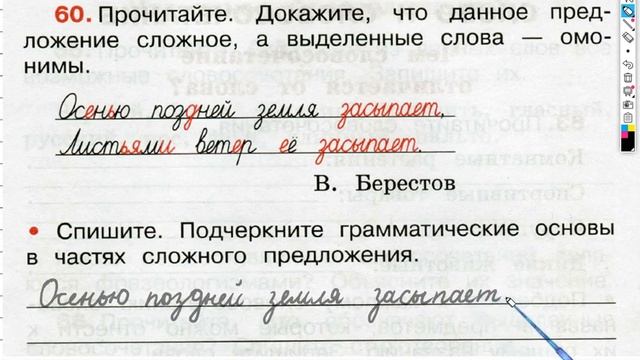 60. Прочитайте. Докажите, что данное пред-
ложение сложное, а выделенные слова — омо-
нимы.
Осенью поздней земля засыпает,
Листьями ветер её засыпает.
В. Берестов
• Спишите. Подчеркните грамматические основы
в частях сложного предложения.
Осенью поздней земля засыпает,